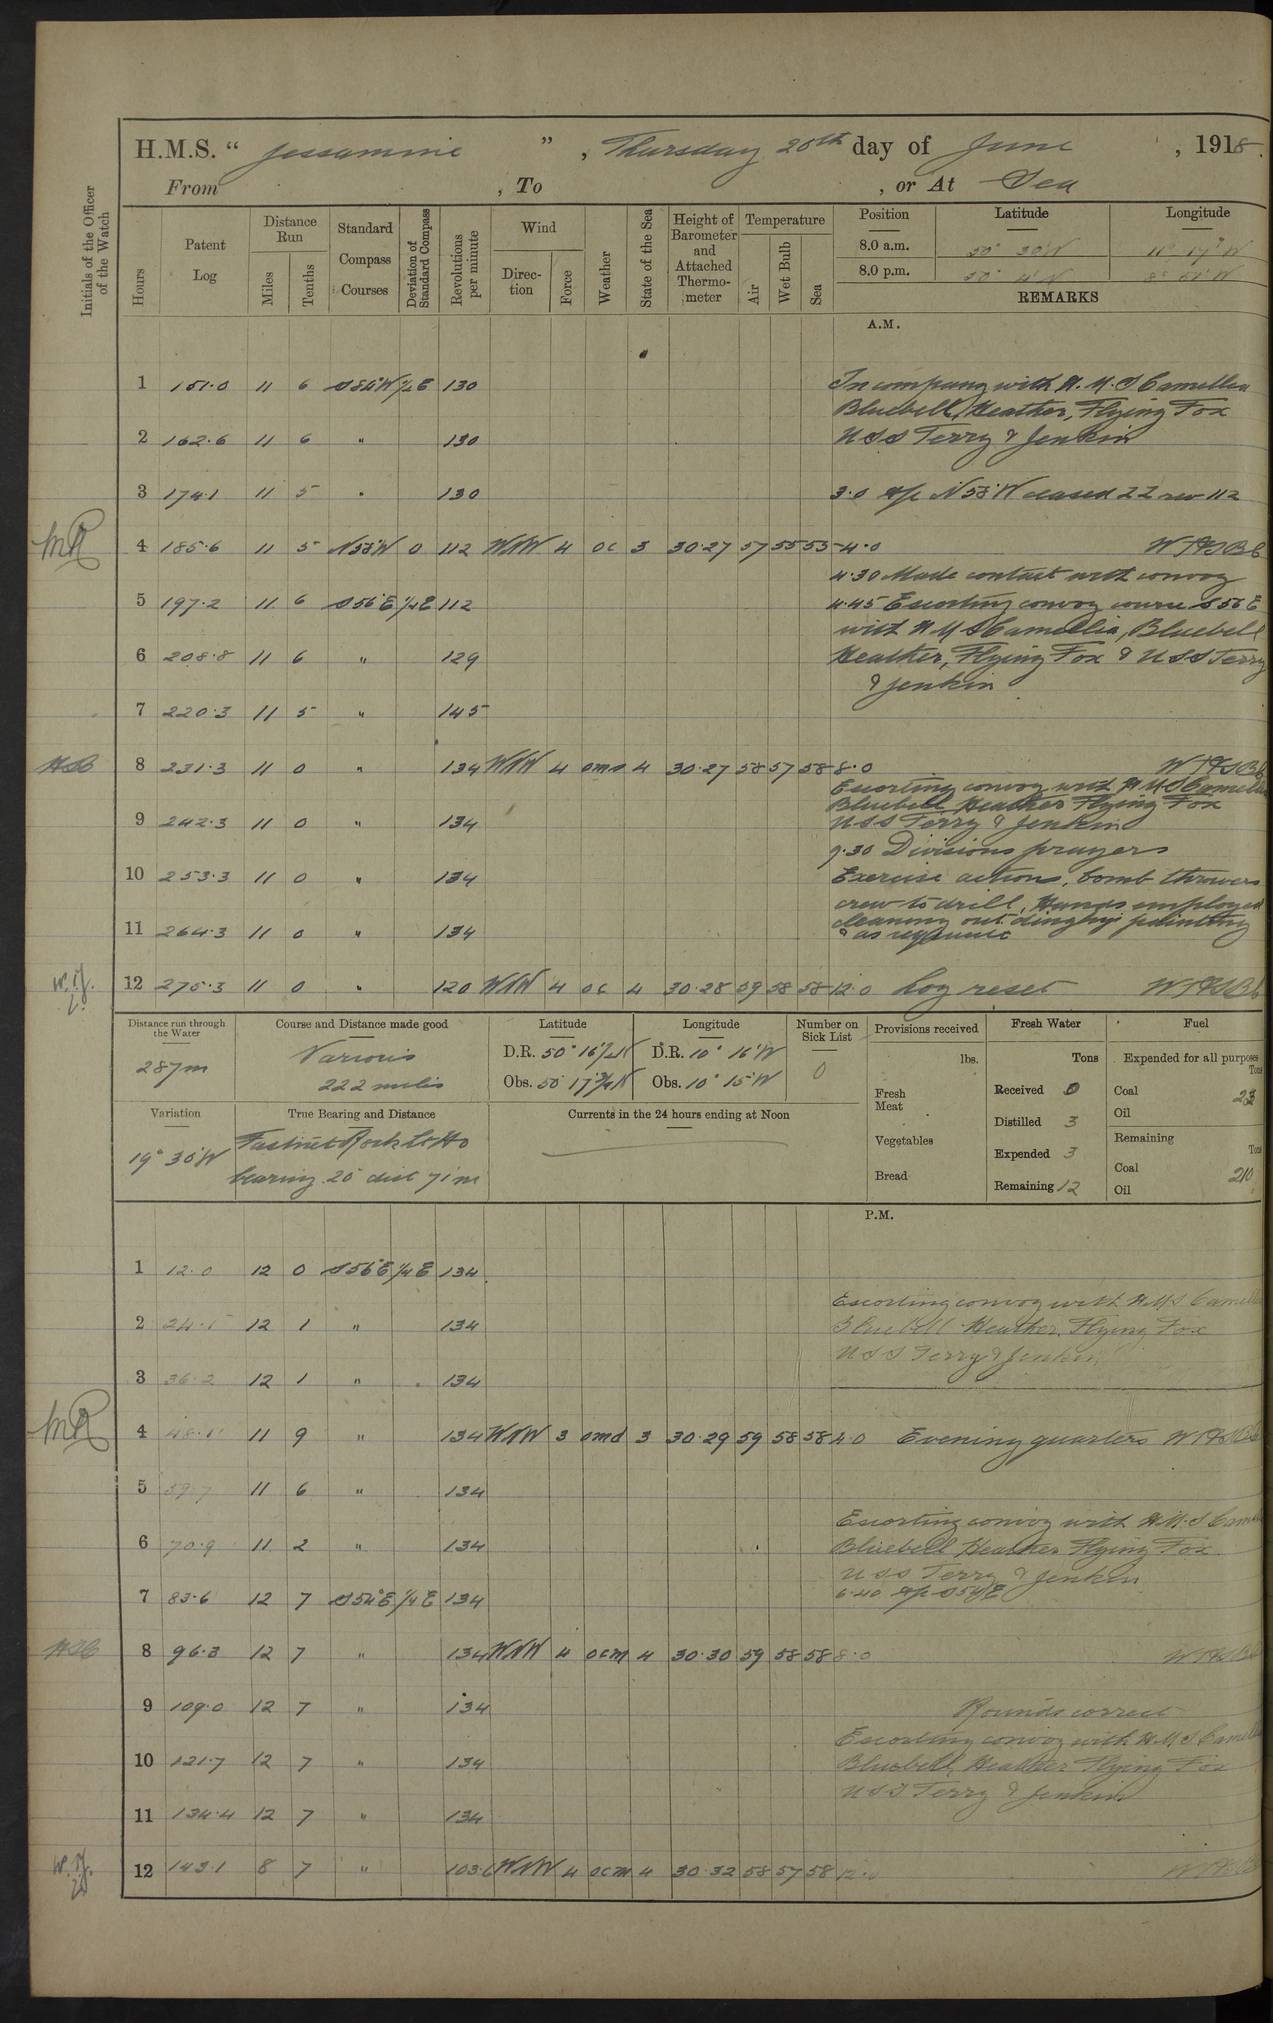 H.M.S. " Jessamine ", Thursday 20th day of June, 1918.
From , To , or At Sea
Initials of the Officer of the Watch
Hours Patent Log Distance Run Miles Tenths Standard Compass Courses Deviation of Standard Compass Revolutions per minute Wind Direction Force Weather State of the Sea Height of Barometer and Attached Thermometer Temperature Air Wet Bulb Sea
Position Latitude Longitude
8.0 a.m. 50° 30' 11° 17' W
8.0 p.m. 50° 4' N 8° 51' W
REMARKS
A.M.
1 151.0 11 6 130 In company with H.M.S Camellia
Bluebell, Heather, Flying Fox
2 162.6 11 6 " 130 USS Terry & Jenkin
3 174.1 11 5 " 130 3.0 a/c N53°W eased 22 rev 112
4 185.6 11 5 N53°W 0 112 WNW 4 oc 3 30.27 57 55 53 4.0
4.30 Made contact with convoy
5 197.2 11 6 S56°E ¼E 112 4.45 Escorting convoy course S56E
with HMS Camellia, Bluebell
6 208.8 11 6 " 129 Heather, Flying Fox & USS Terry
& Jenkin
7 220.3 11 5 " 145
8 231.3 11 0 " 134 WNW 4 4 30.27 58 57 58 8.0
Escorting convoy with HMS Camellia
Bluebell Heather Flying Fox
9 242.3 11 0 " 134 USS Terry & Jenkin
9.30 Divisions prayers
10 253.3 11 0 " 134 Exercise action, bomb throwers
crew to drill, Hands employed
cleaning out dinghy painting
11 264.3 11 0 " 134 & as requisite
12 275.3 11 0 " 120 WNW 4 oc 4 30.28 59 58 58 12.0 Log reset
Distance run through the Water Course and Distance made good Latitude Longitude Number on Sick List Provisions received Fresh Water Fuel
287m Various 222 miles D.R. 50° 16½'N D.R. 10° 16'W 0 lbs. Tons Expended for all purposes Tons
Obs. 50° 17¾'N Obs. 10° 15'W Fresh Meat Received 0 Coal 23
Oil
Variation True Bearing and Distance Currents in the 24 hours ending at Noon Distilled 3 Remaining Tons
19° 30'W Fastnet Rock Lt Ho Vegetables Expended 3 Coal 210
bearing 20° dist 71m Bread Remaining 12 Oil
P.M.
1 12.0 12 0 S56°E ¼E 134
Escorting convoy with HMS Camellia
2 24.1 12 1 " 134 Bluebell Heather, Flying Fox
USS Terry & Jenkin
3 36.2 12 1 " 134
4 11 9 " 134 WNW 3 omd 3 30.29 59 58 58 4.0 Evening quarters
5 59.7 11 6 " 134
Escorting convoy with H.M.S Camellia
6 70.9 11 2 " 134 Bluebell Heather Flying Fox
USS Terry & Jenkin
7 83.6 12 7 S54°E ¼E 134 6.40 a/c S54°E
8 96.3 12 7 " 134 WNW 4 ocm 4 30.30 59 58 58 8.0
9 109.0 12 7 " 134 Rounds correct
Escorting convoy with HMS Camellia
10 121.7 12 7 " 134 Bluebell, Heather Flying Fox
USS Terry & Jenkin
11 134.4 12 7 " 134
12 143.1 8 7 " 103.6 WNW 4 ocm 4 30.32 58 57 58 12.0